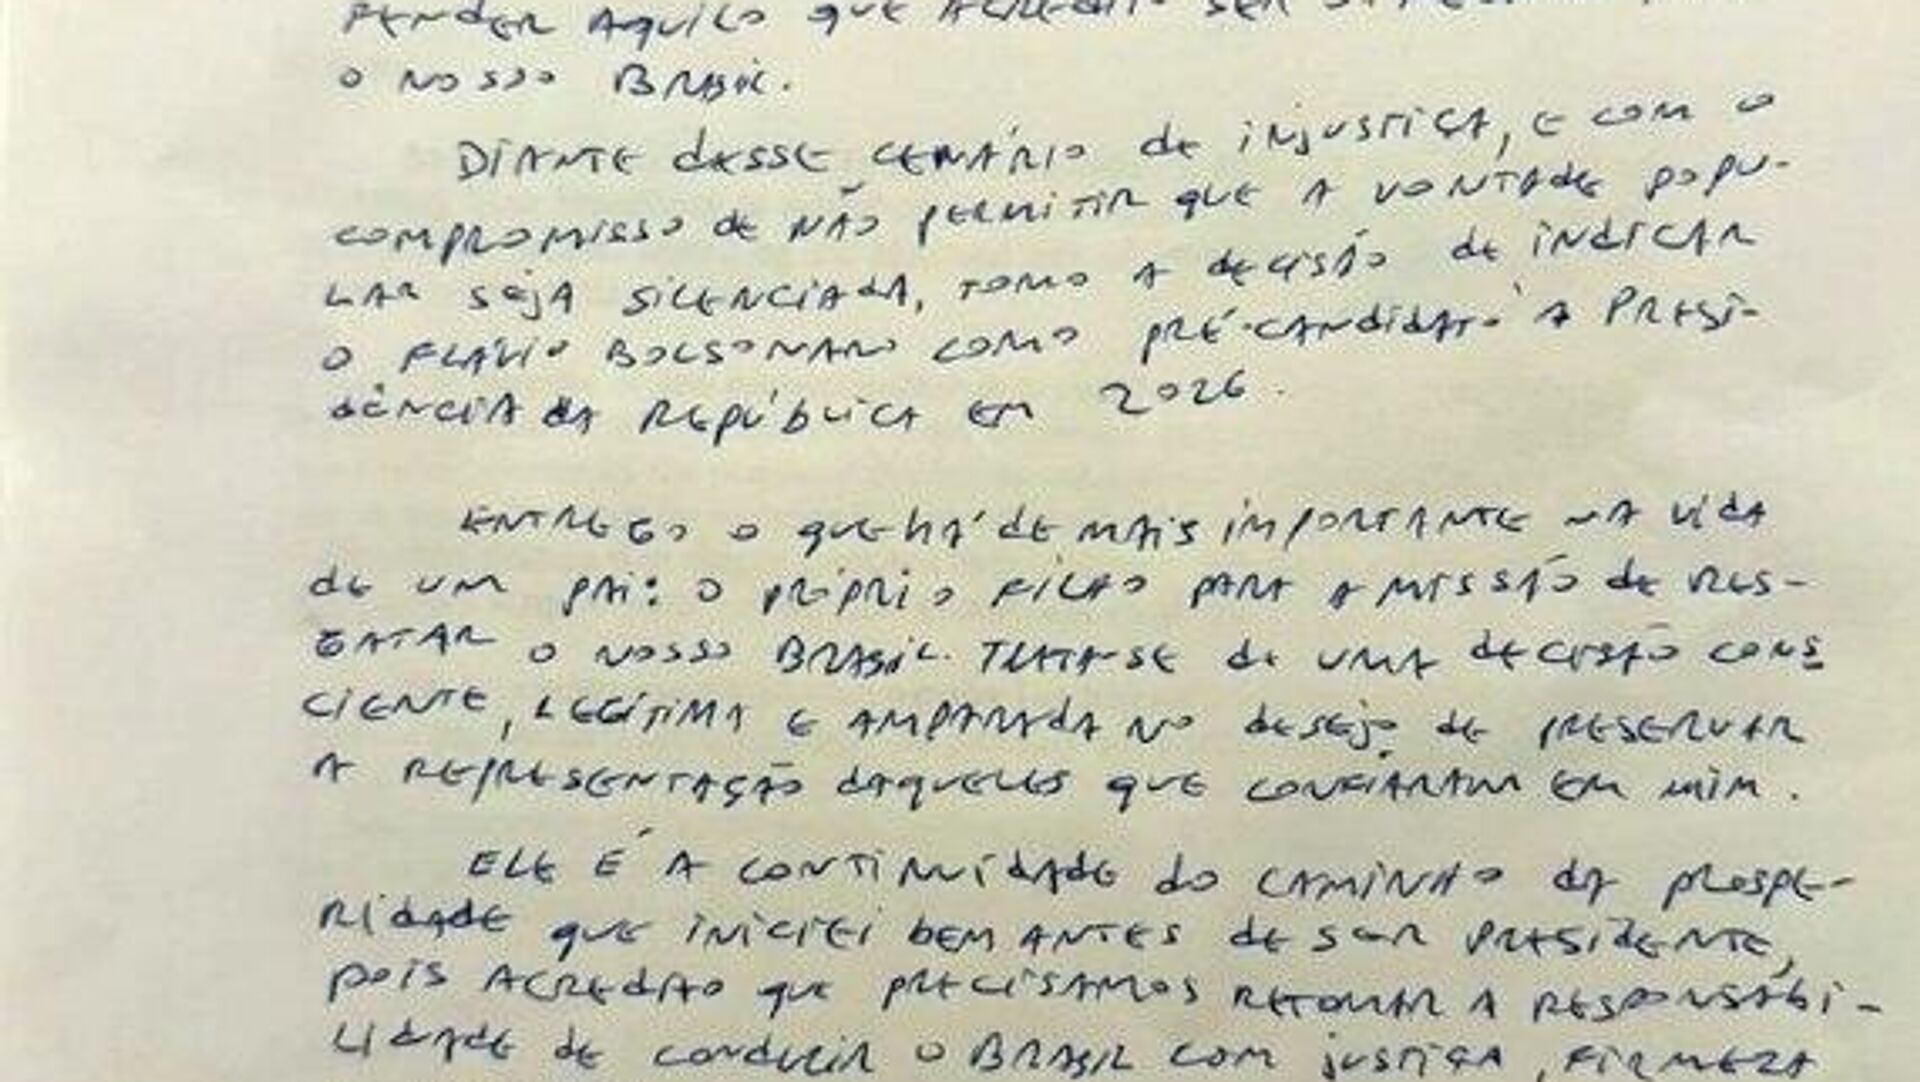 FENDER AQUILO QUE ACREDITO SER
O NOSSO BRASIL.
DIANTE DESSE CENÁRIO DE INJUSTIÇA, E COM O
COMPROMISSO DE NÃO PERMITIR QUE A VONTADE POPU-
LAR SEJA SILENCIADA, TOMO A DECISÃO DE INDICAR
O FLÁVIO BOLSONARO COMO PRÉ-CANDIDATO À PRESI-
DÊNCIA DA REPÚBLICA EM 2026.
ENTREGO O QUE HÁ DE MAIS IMPORTANTE NA VIDA
DE UM PAI: O PRÓPRIO FILHO PARA A MISSÃO DE RES-
GATAR O NOSSO BRASIL. TRATA-SE DE UMA DECISÃO CONS
CIENTE, LEGÍTIMA E AMPARADA NO DESEJO DE PRESERVAR
A REPRESENTAÇÃO DAQUELES QUE CONFIARAM EM MIM.
ELE É A CONTINUIDADE DO CAMINHO DA PROSPE-
RIDADE QUE INICIEI BEM ANTES DE SER PRESIDENTE,
POIS ACREDITO QUE PRECISAMOS RETOMAR A RESPONSABI-
LIDADE DE CONDUZIR O BRASIL COM JUSTIÇA, FIRMEZA